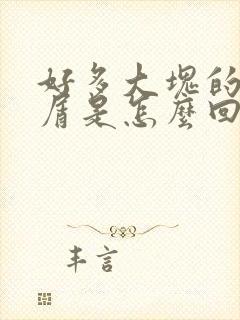 好多大堤的
盾是怎麼回
丰言